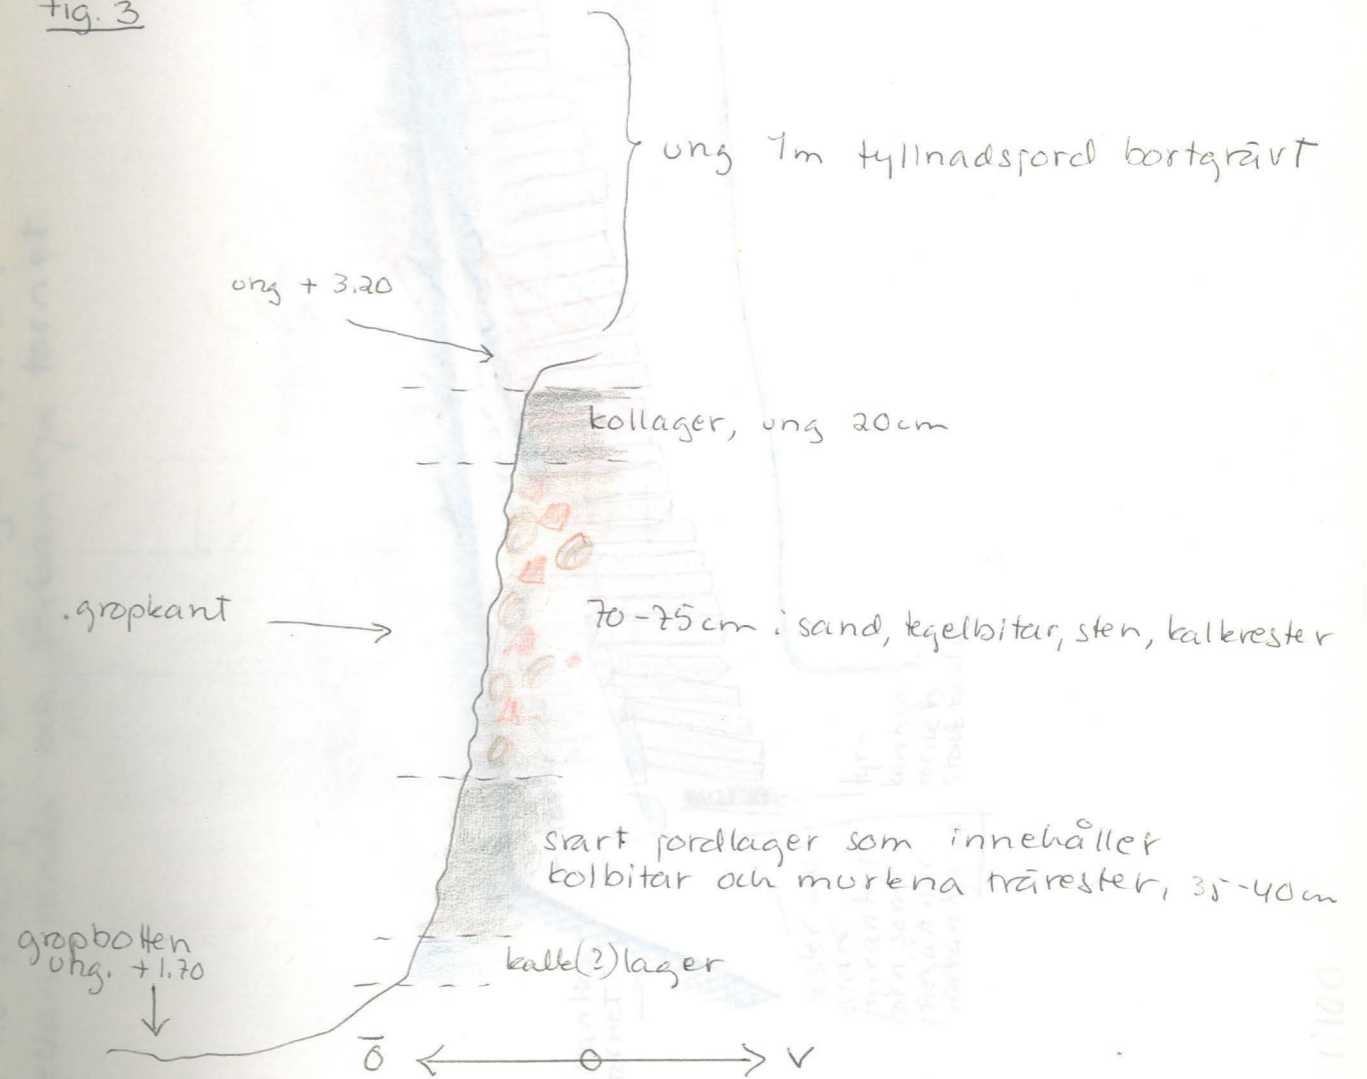 Fig. 3
ung 1m fyllnadsjord bortgrävt
ung + 3.20
kollager, ung 20cm
gropkant
70-75cm: sand, tegelbitar, sten, kalkrester
svart jordlager som innehåller
kolbitar och murkna trärester, 35-40cm
gropbotten
ung. +1.70
kalk(?)lager
Ö
V